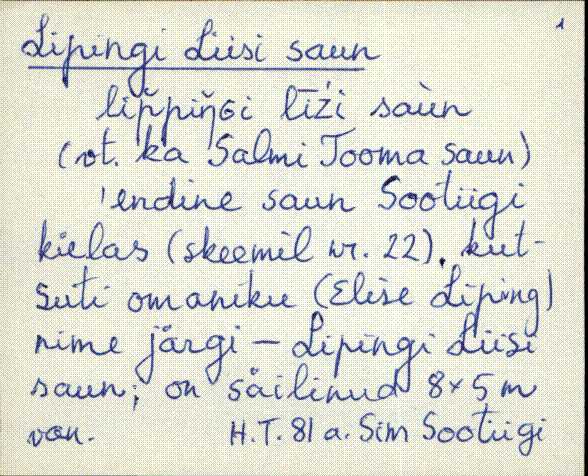 1
Lipingi Liisi saun
lip̌piŋ̌ɢi līźi saùn
(vt. ka Salmi Tooma saun)
'endine saun Sootiigi
kielas (skeemil nr. 22), kut-
suti omaniku (Elise Liping)
nime järgi – Lipingi Liisi
saun; on säilinud 8×5 m
van. H.T. 81 a. Sim Sootiigi